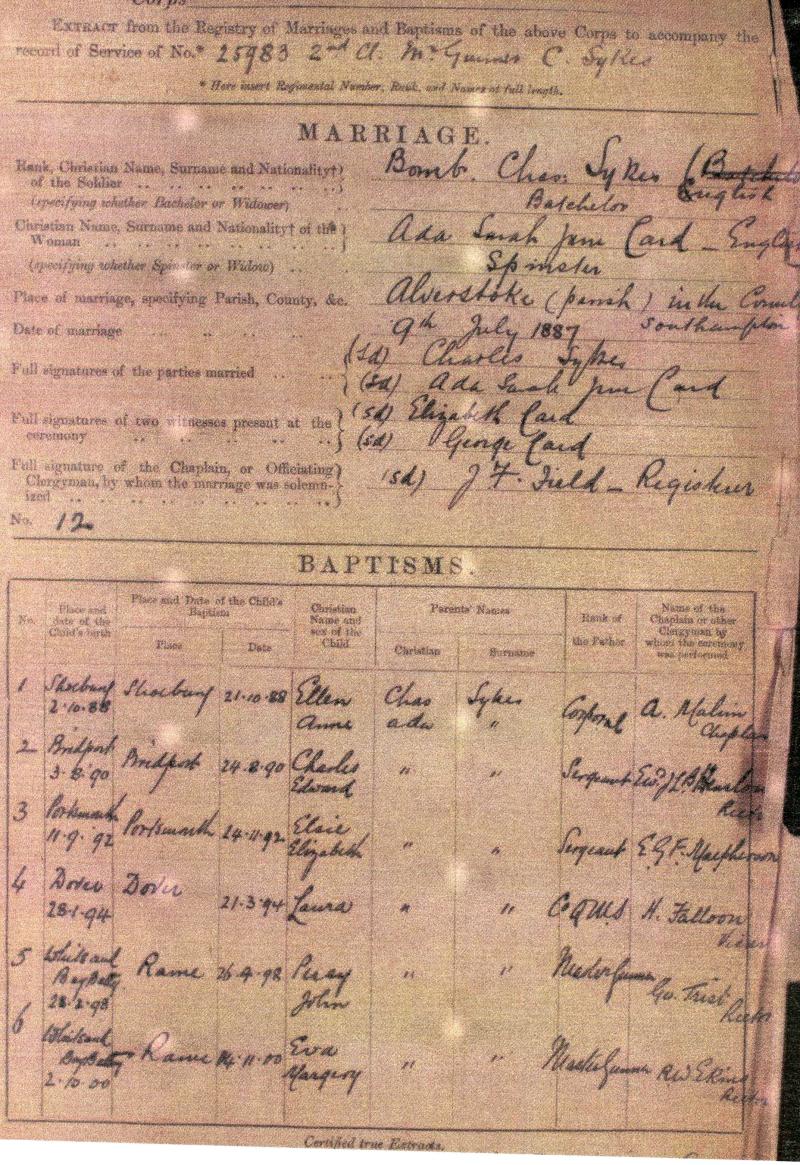 Corps
EXTRACT from the Registry of Marriages and Baptisms of the above Corps to accompany the
record of Service of No.* 25983 2nd Cl. Mr Gunner C. Sykes
* Here insert Regimental Number, Rank, and Names at full length.
MARRIAGE.
Rank, Christian Name, Surname and Nationality† of the Soldier Bomb. Chas: Sykes (Batchelo English
(specifying whether Bachelor or Widower) Batchelor
Christian Name, Surname and Nationality† of the Woman Ada Sarah Jane Card – Englis
(specifying whether Spinster or Widow) Spinster
Place of marriage, specifying Parish, County, &c. Alverstoke (parish) in the Count Southampton
Date of marriage 9th July 1887
Full signatures of the parties married (sd) Charles Sykes
(sd) Ada Sarah Jane Card
Full signatures of two witnesses present at the ceremony (sd) Elizabeth Card
(sd) George Card
Full signature of the Chaplain, or Officiating Clergyman, by whom the marriage was solemnized (sd) J F. Field – Registrar
No. 12
BAPTISMS.
No. Place and date of the Child's birth Place and Date of the Child's Baptism Christian Name and sex of the Child Parents' Names Rank of the Father Name of the Chaplain or other Clergyman by whom the ceremony was performed
Place Date Christian Surname
1 Shoebury Shoebury 21.10.88 Ellen Chas Sykes Corporal A. Malim
2.10.88 Anne Ada " Chaplain
2 Bridport Bridport 24.8.90 Charles " " Sergeant
3.8.90 Edward Rector
3 Portsmouth Portsmouth 24.11.92 Elsie " " Sergeant E.G.F. Macpherson
11.9.'92 Elizabeth
4 Dover Dover 21.3.94 Laura " " CoQMS H. Falloon
28.1.94 Vicar
5 Whitsand Rame 26.4.98 Percy " " Master Gunner Geo. Trist
Bay Batty John Rector
28.2.98
6 Whitsand Rame 14.11.00 Eva " " Master Gunner RW Ekins
Bay Batty Margery Rector
2.10.00
Certified true Extracts.